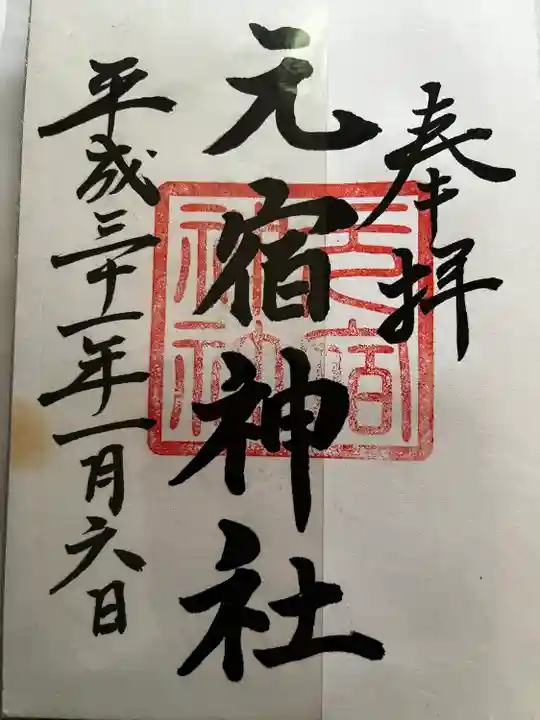 奉拝
元宿神社
平成三十一年一月六日